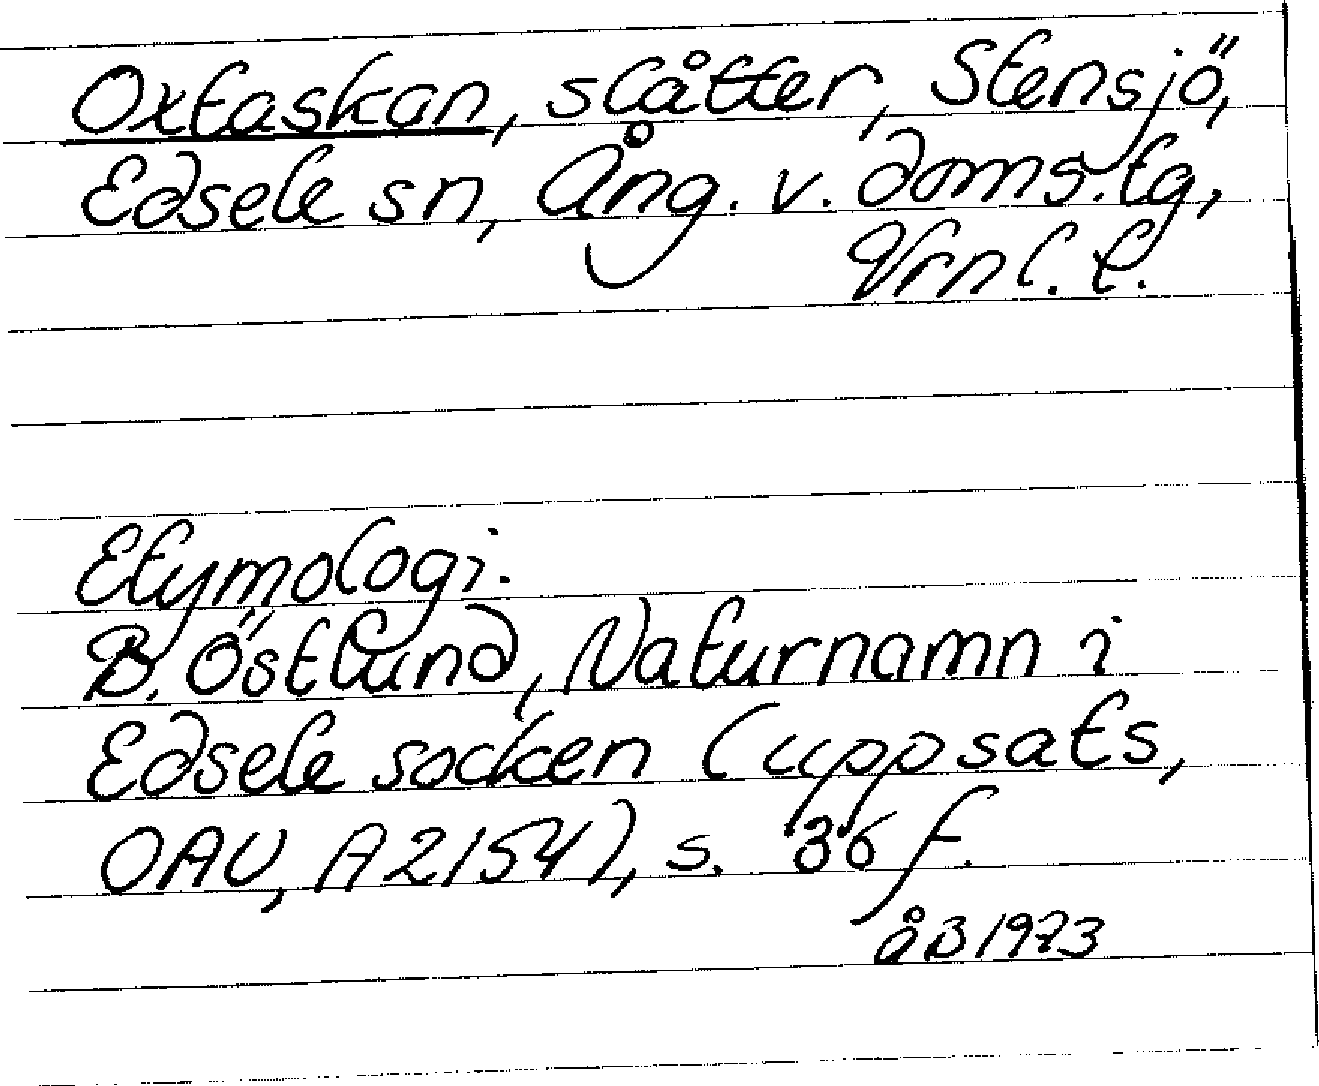 Oxtaskan, slåtter, Stensjö,
Edsele sn, Ång. v. doms.tg,
Vrnl. l.
Etymologi.
B. Östlund, Naturnamn i
Edsele socken (uppsats,
OAU, A2154), s. 36 f.
åB 1973